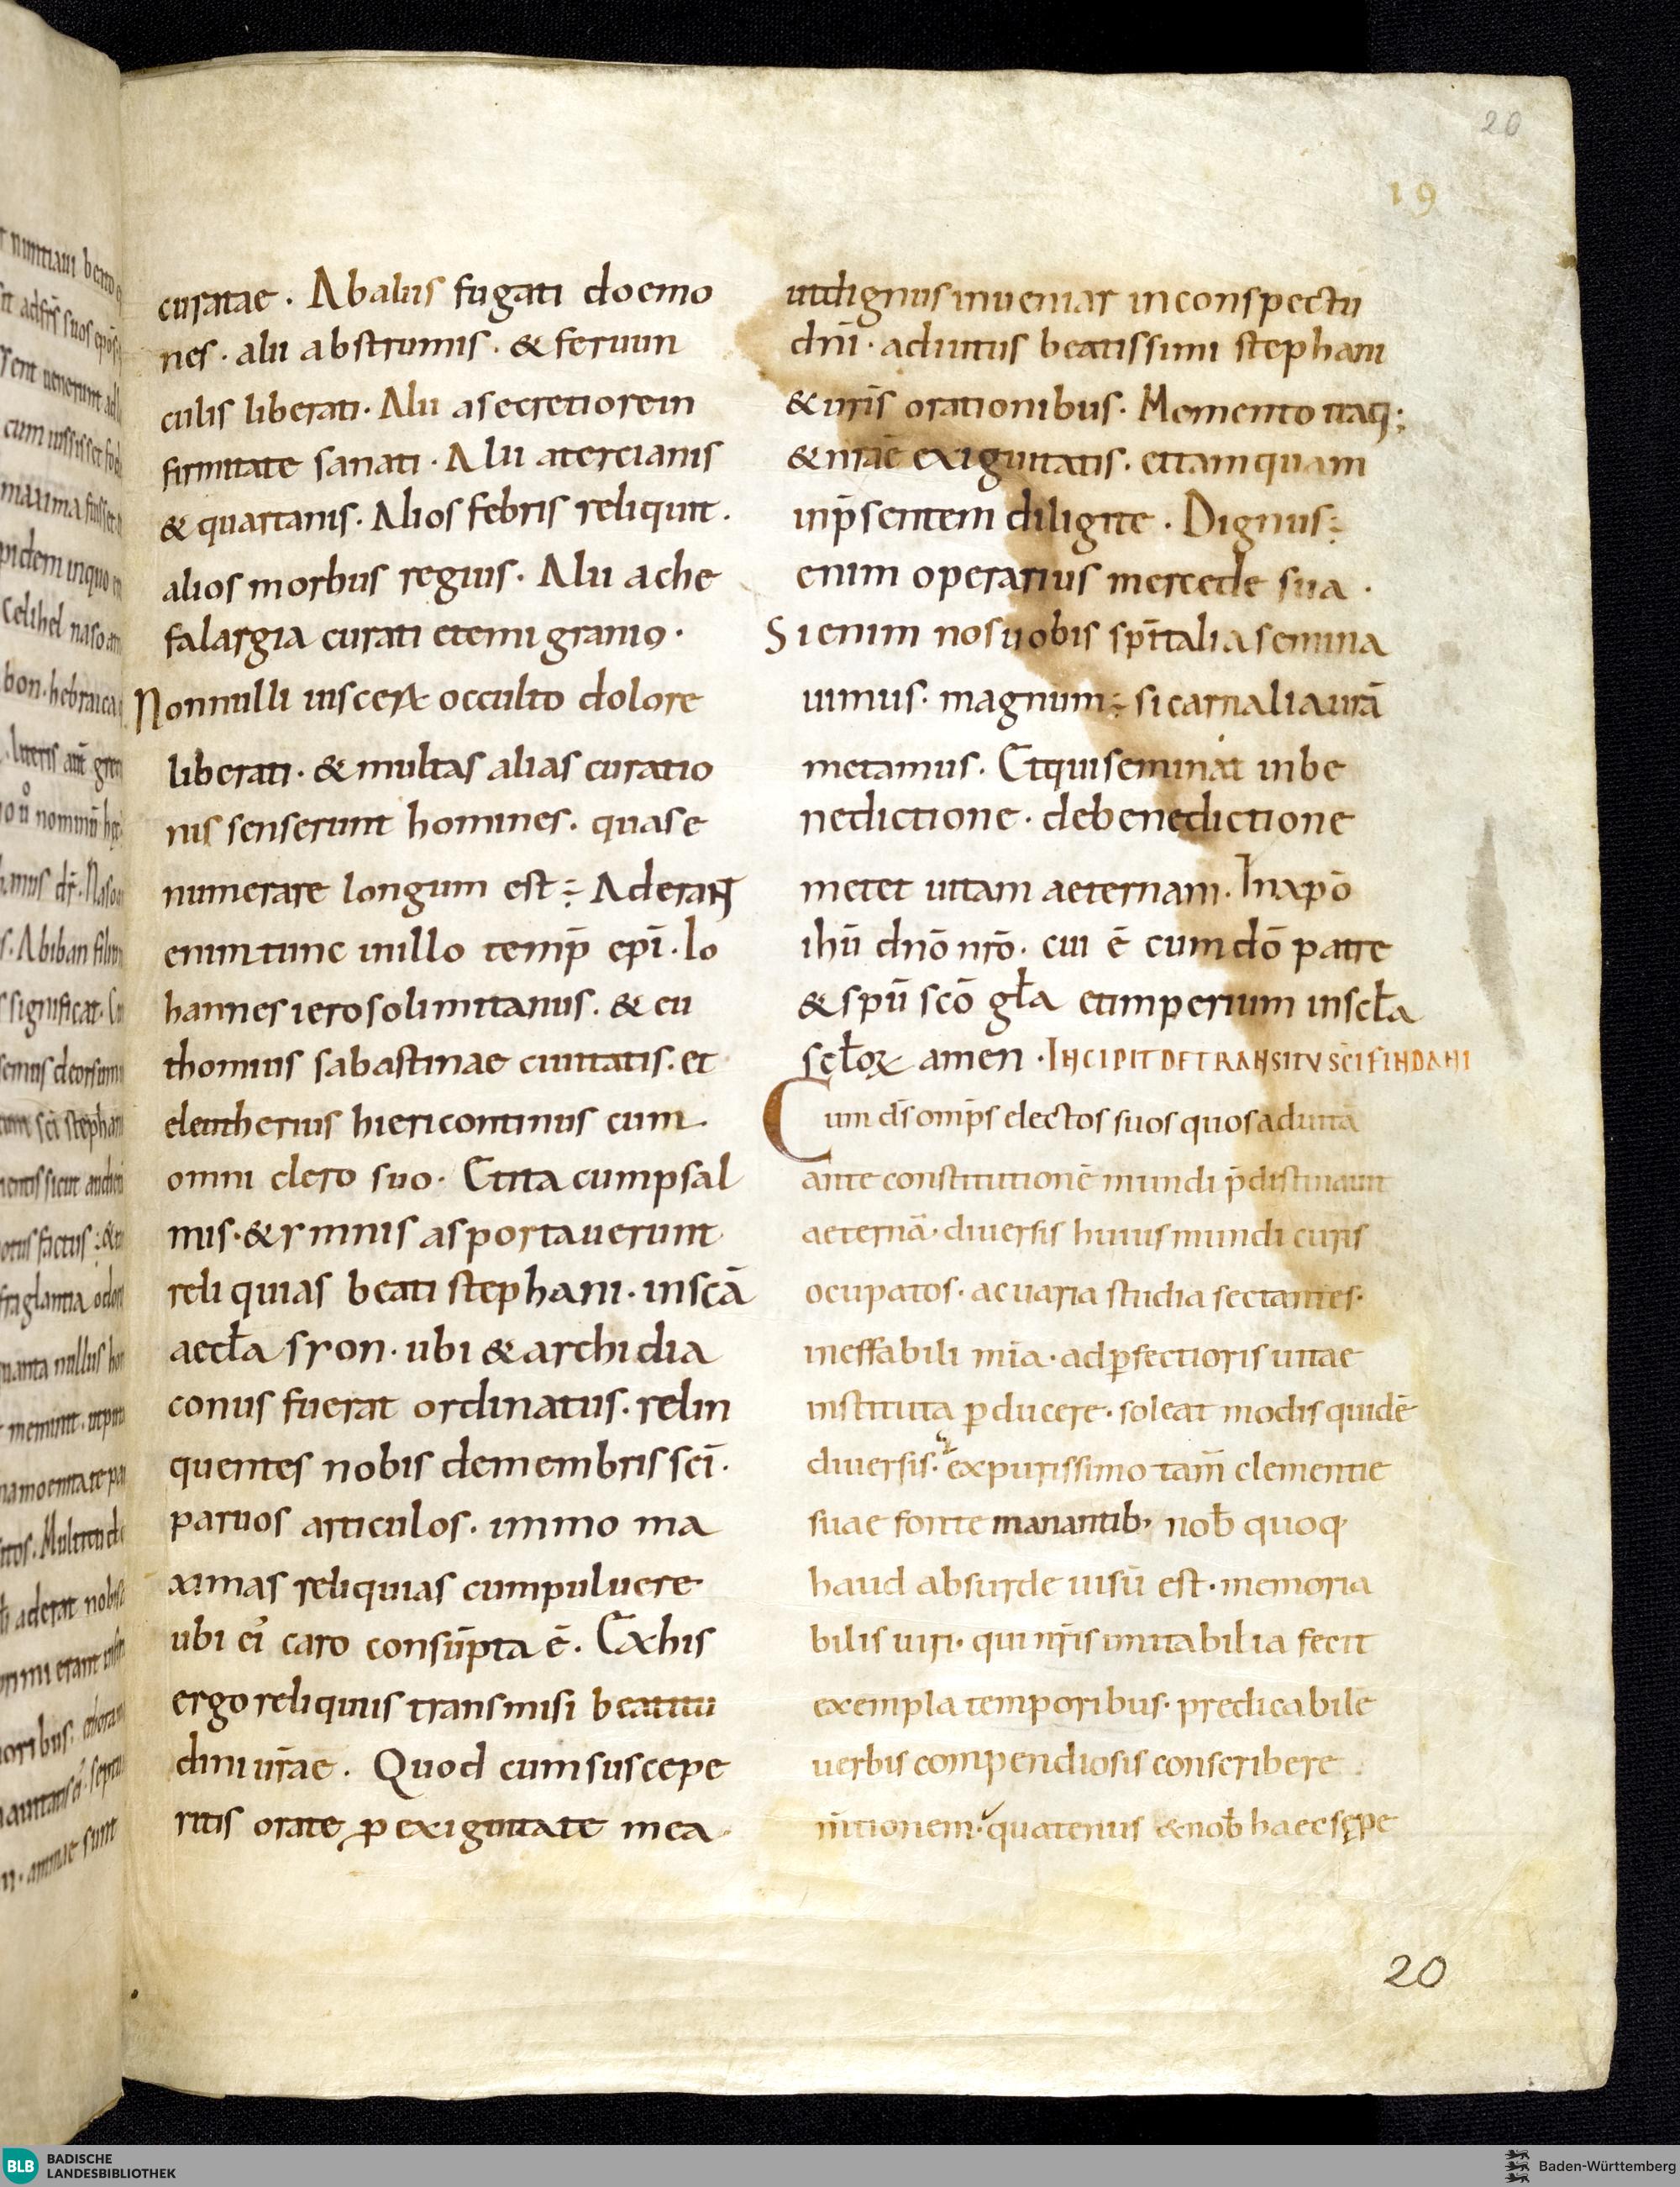 20
19
curatae. Abaliis fugati doemo
nes. alii abstrumis. & feruun
culis liberati. Alii asecretiorein
firmitate sanati. Alii atercianis
& quartanis. Alios febris reliquit.
alios morbus regius. Alii ache
falargia curati etemigranio.
Nonnulli uiscerꝝ occulto dolore
liberati. & multas alias curatio
nis senserunt homines. quase
numerare longum est ÷ Aderant
enim tunc inillo temp̄ ep̄i. Io
hannes ierosolimitanus. & eu
thomius sabastinae ciuitatis. et
eleutherius hiericontinus cum
omni clero suo. Etita cumpsal
mis. & ymnis asportauerunt
reliquias beati stephani. inscā
aecl̄a syon. ubi & archidia
conus fuerat ordinatus. relin
quentes nobis demembris sc̄i.
paruos articulos. immo ma
ximas reliquias cumpuluere
ubi ei᾽ caro consūpta ē. Exhis
ergo reliquiis transmisi beatitu
dini ur̄ae. Quod cumsuscepe
ritis orate ꝓ exiguitate mea
utdignus inueniar inconspectu
dn̄i. aduitus beatissimi stephani
& ur̄is orationibus. Momento itaq;
& nr̄ae exiguitatis. etiamquam
inp̄sentem diligite. Dignus ÷
enim operarius mercede sua.
Si enim nos uobis spīt̄alia semina
uimus. magnum ÷ si carnalia ur̄ā
metamus. Etqui seminat inbe
nedictione. debenedictione
metet uitam aeternam. Inxp̄ō
ihū dnō nrō. cui ē cum dō patre
& spū scō gl̄a etimperium inscl̄a
scl̄oꝝ amen. INCIPIT DE TRANSITU SC̄I FINDANI
Cum ds̄ omīps electos suos quosaduitā
ante constitutionē mundi p̄distinauit
aeternā. diuersis huius mundi curis
ocupatos. acuaria studia sectantes.
ineffabili mīa. adp̱fectioris uitae
instituta ꝑducere. soleat modis quidē
diuersis. expurissimo tam̄ clementie
suae fonte manantib; nob̄ quoq;
haud absurde uisū est. memoria
bilis uiri. qui nr̄is imitabilia fecit
exempla temporibus. predicabilē
uerbis compendiosis conscribere
n̄itionem. quatenus & nob̄ haec sępe
20
BLB BADISCHE
LANDESBIBLIOTHEK
Baden-Württemberg